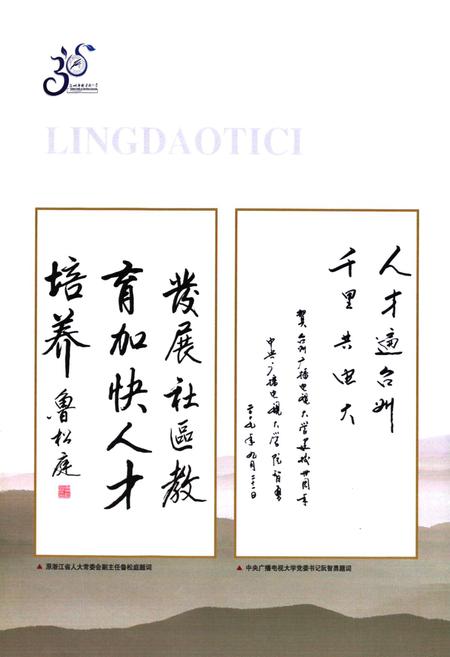 LINGDAOTICI
發展社區教
育加快人才
培养
魯松庭
人才遍台州
千里共电大
贺台州广播电视大学建校卅周年
中央广播电视大学 阮智勇
二〇〇九年九月二十一日
▲ 原浙江省人大常委会副主任鲁松庭题词
▲ 中央广播电视大学党委书记阮智勇题词